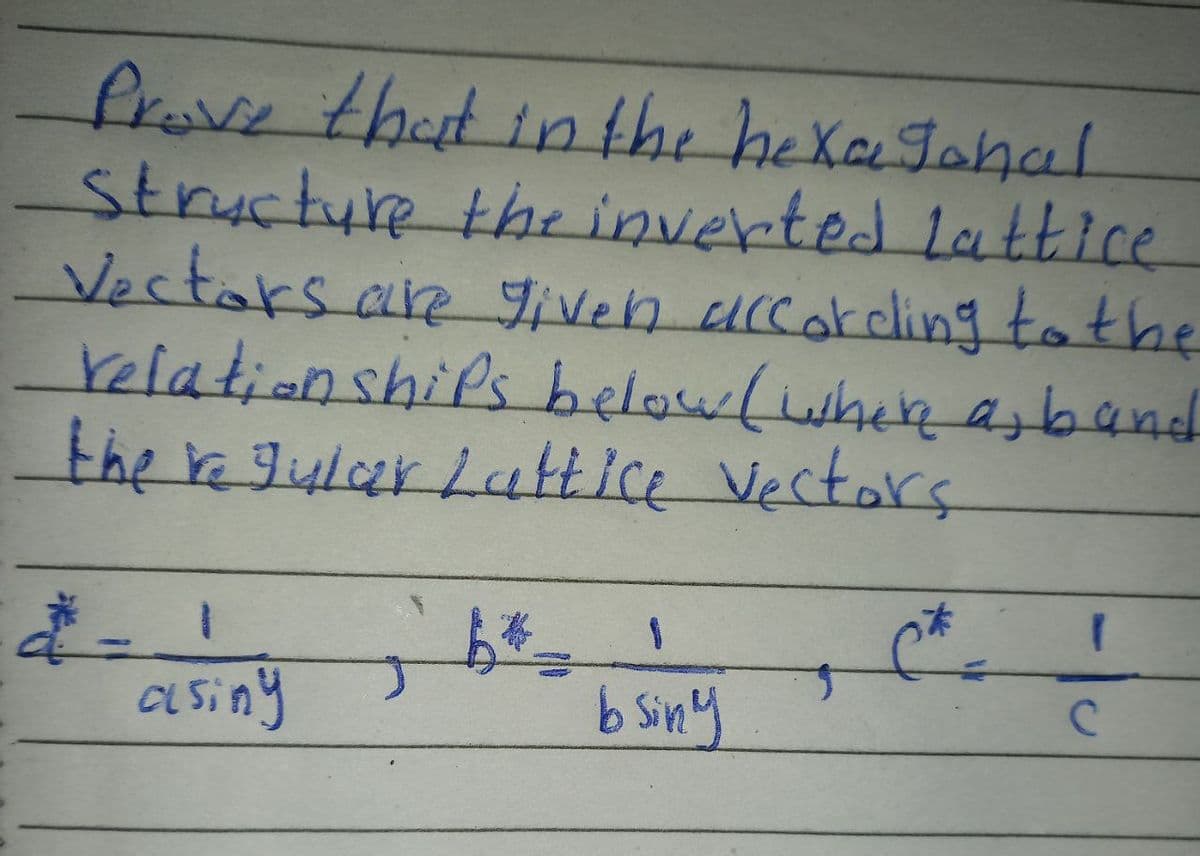 Prove that in the hexagonal
structure the inverted Lattice
Vectors are given according to the
relationships below (where a, b and
the regular Lattice Vectors
a* = 1 / a sin y , b* = 1 / b sin y , c* = 1 / c